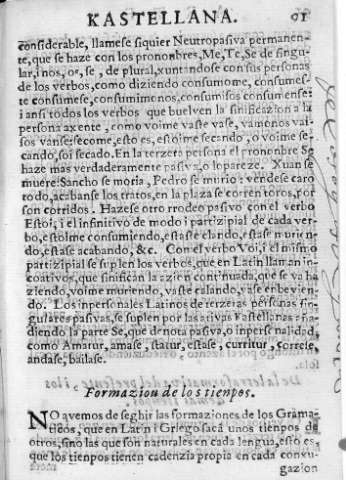 KASTELLANA. 91
considerable, llamese siquier Neutropasiva permanen-
te, que se haze con los pronombres, Me, Te, Se de singu-
lar, i nos, os, se, de plural, xuntandose con sus personas
de los verbos, como diziendo consumome, consumes-
te consumese, consumimonos, consumisos consumense:
i ansi todos los verbos que buelven la sinificazion a la
persona axente, como voime vaste vase, vamonos vai-
sos vanse: secome, esto es, estoime secando, o voime se-
cando, soi secado. En la terzera persona el pronombre Se
haze mas verdaderamente pasiva, o lo pareze. Xuan se
muere: Sancho se moria, Pedro se murio: vendese caro
todo, acabanse los tratos, en la plaza se corren toros, por
son corridos. Hazese otro rrodeo pasivo con el verbo
Estoi, i el infinitivo de modo i partizipial de cada ver-
bo, estoime consumiendo, estaste elando, estase murien-
do, estase acabando, &c. Con el verbo Voi, i el mismo
partizipial se suplen los verbos, que en Latin llaman in-
coativos, que sinifican la azion continuada, que se va ha
ziendo, voime muriendo, vaste calando, vase enbevien-
do. Los inpersonales Latinos de terzeras personas sin-
gulares pasivas, se suplen por las ativas Kastellanas aña-
diendo la parte Se, que denota pasiva, o inpersonalidad,
como Amatur, amase, statur, estase, curritur, correse,
andase, bailase.
Formazion de los tienpos.
NO avemos de seghir las formaziones de los Grama-
ticos, que en Latin i Griego sacã unos tienpos de
otros, sino las que son naturales en cada lengua, esto es,
que los tienpos tienen cadenzia propia en cada conxu-
gazion